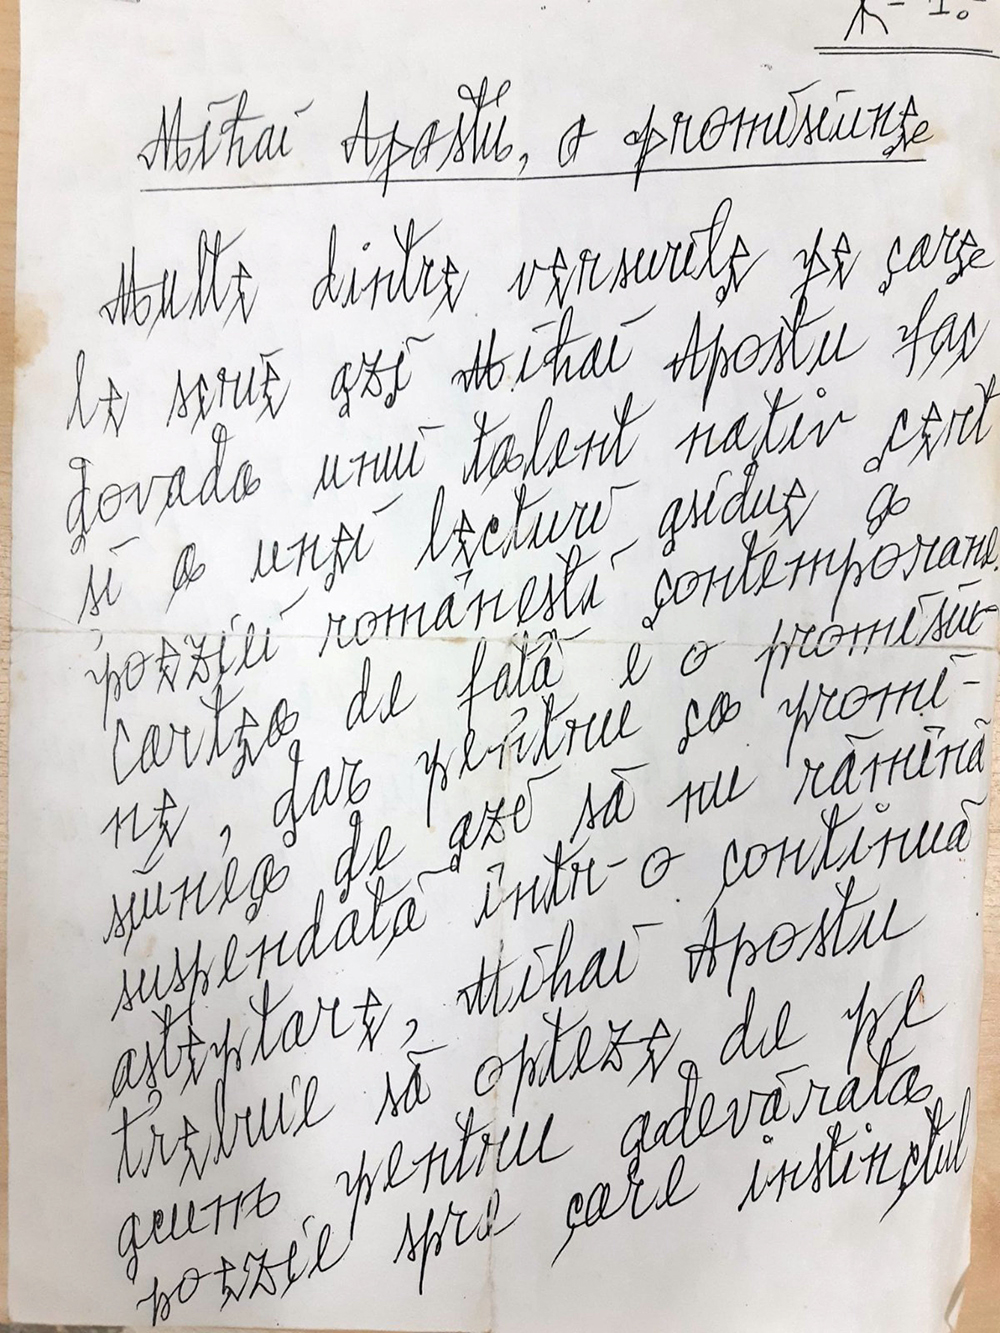 - 1. -
Mihai Apostu, o promisiune
Multe dintre versurile pe care
le scrie azi Mihai Apostu fac
dovada unui talent nativ cert
si a unei lecturi asidue a
poeziei românesti contemporane.
Cartea de fată e o promisiu-
ne, dar pentru ca promi-
siunea de azi să nu rămînă
suspendată într-o continuă
asteptare, Mihai Apostu
trebuie să opteze de pe
acum pentru adevărata
poezie spre care instinctul